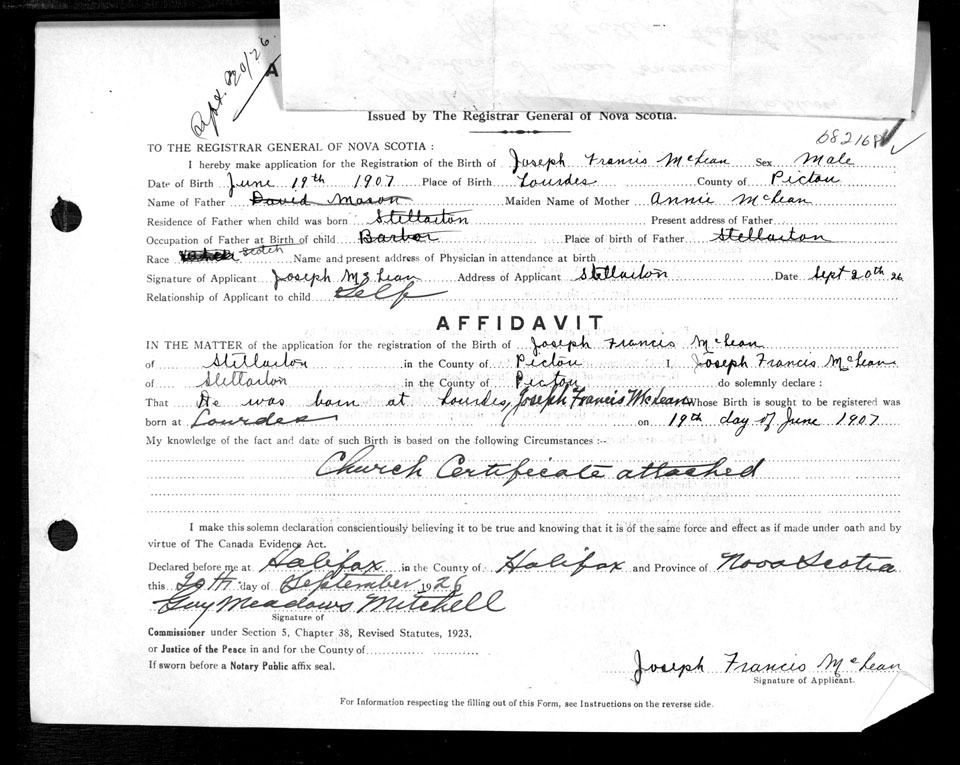 Sept. 20/26
A
Issued by The Registrar General of Nova Scotia.
68216P
TO THE REGISTRAR GENERAL OF NOVA SCOTIA:
I hereby make application for the Registration of the Birth of Joseph Francis McLean Sex Male
Date of Birth June 19th 1907 Place of Birth Lourdes County of Pictou
Name of Father David Mason Maiden Name of Mother Annie McLean
Residence of Father when child was born Stellarton Present address of Father
Occupation of Father at Birth of child Barber Place of birth of Father Stellarton
Race Scotch Name and present address of Physician in attendance at birth
Signature of Applicant Joseph McLean Address of Applicant Stellarton Date Sept 20th 26
Relationship of Applicant to child Self
AFFIDAVIT
IN THE MATTER of the application for the registration of the Birth of Joseph Francis McLean
of Stellarton in the County of Pictou I Joseph Francis McLean
of Stellarton in the County of Pictou do solemnly declare:
That He was born at Lourdes, Joseph Francis McLean Whose Birth is sought to be registered was
born at Lourdes on 19th day of June 1907
My knowledge of the fact and date of such Birth is based on the following Circumstances:--
Church Certificate attached
I make this solemn declaration conscientiously believing it to be true and knowing that it is of the same force and effect as if made under oath and by
virtue of The Canada Evidence Act.
Declared before me at Halifax in the County of Halifax and Province of Nova Scotia
this 20th day of September 1926
Guy Meadows Mitchell
Signature of
Commissioner under Section 5, Chapter 38, Revised Statutes, 1923,
or Justice of the Peace in and for the County of
If sworn before a Notary Public affix seal.
Joseph Francis McLean
Signature of Applicant.
For Information respecting the filling out of this Form, see Instructions on the reverse side.